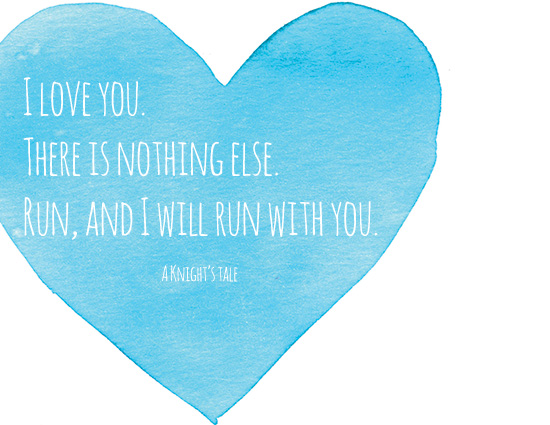 I love you.
There is nothing else.
Run, and I will run with you.
A Knight's tale